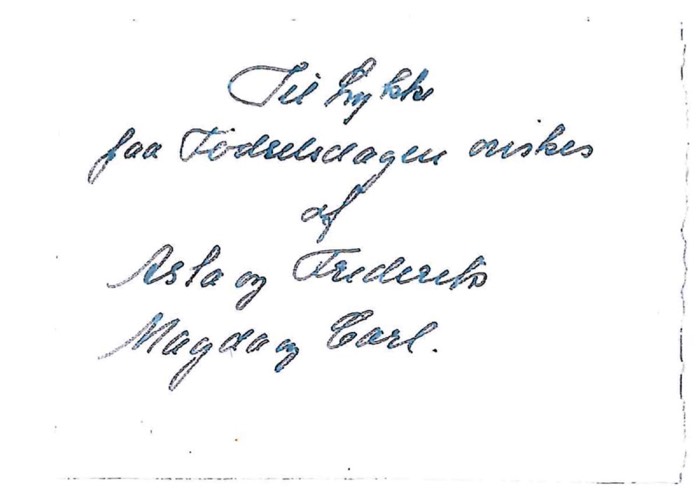 Til Lykke
paa Fødselsdagen ønskes
af
Asta og Frederik
Magda og Carl.